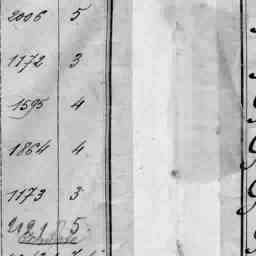 2006 5
1172 3
1595 4
1864 4
1173 3
2121 5